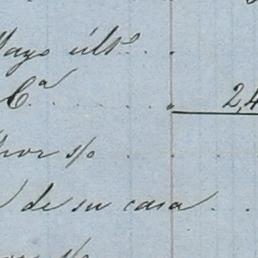 Mayo últº
Cª 2,4
por s/o
de su casa
s/o